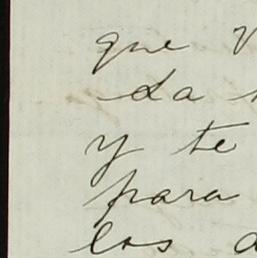 que
da
y te
para
los